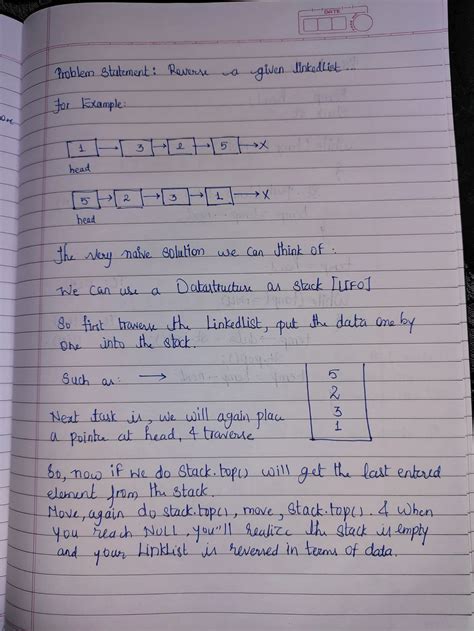 DATE
Problem Statement: Reverse a given linkedlist...
For Example:
1 → 3 → 2 → 5 → X
head
5 → 2 → 3 → 1 → X
head
The very naive solution we can think of:
We can use a Datastructure as stack [LIFO]
So first traverse the Linkedlist, put the data one by
one into the stack.
Such as: →
5
2
3
1
Next task is, we will again place
a pointer at head, & traverse
So, now if we do stack.top() will get the last entered
element from the stack.
Move, again do stack.top(), move, stack.top(). & when
you reach NULL, you'll realize the stack is empty
and your LinkList is reversed in terms of data.